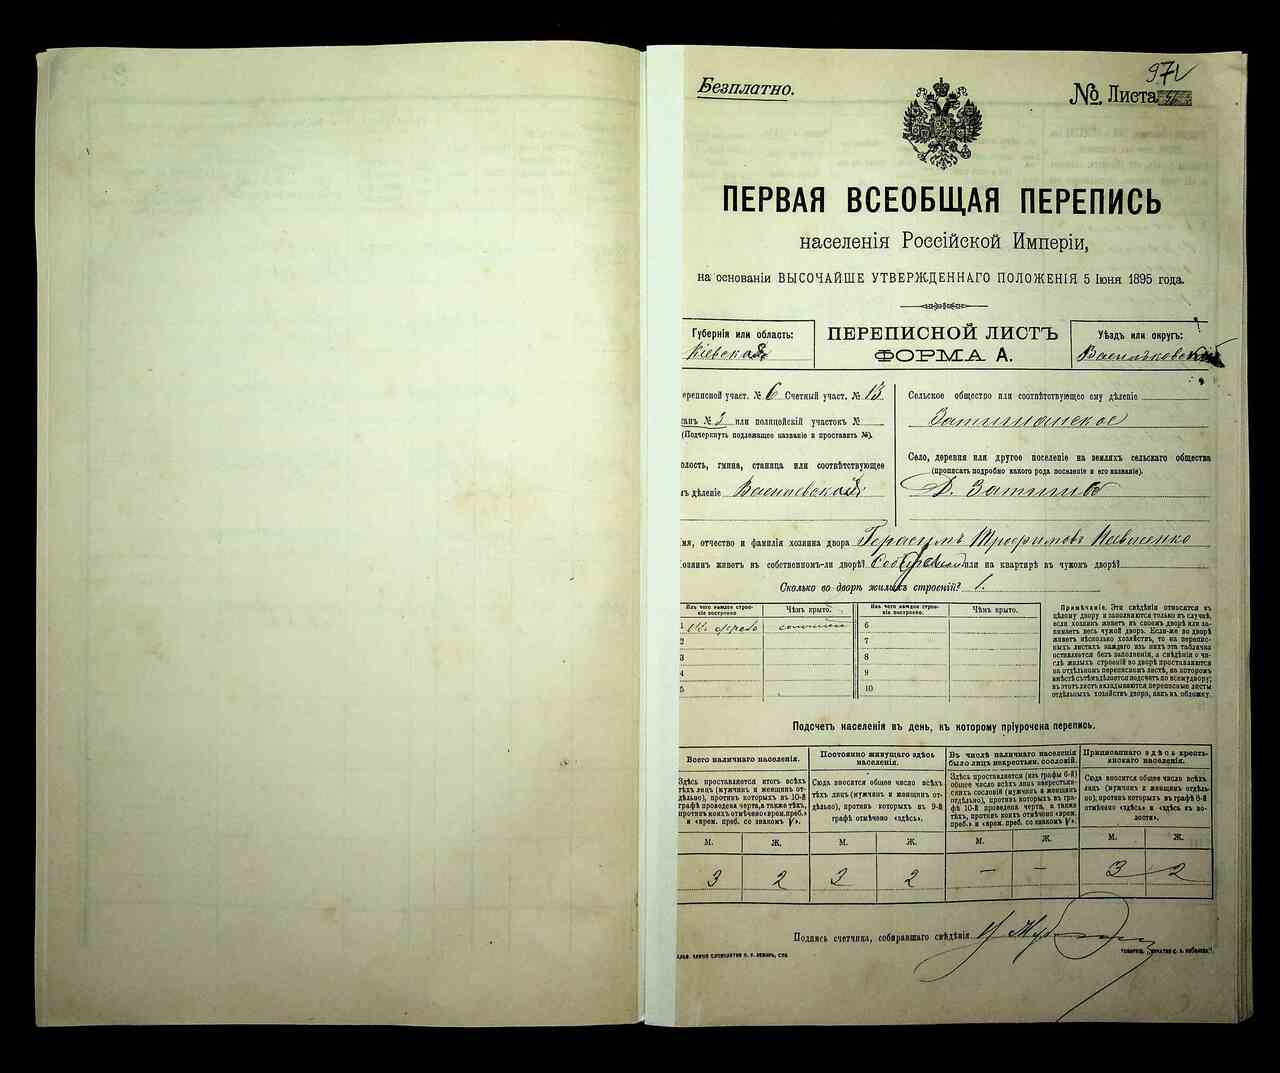 Безплатно.
97
№ Листа
ПЕРВАЯ ВСЕОБЩАЯ ПЕРЕПИСЬ
населенія Россійской Имперіи,
на основаніи ВЫСОЧАЙШЕ УТВЕРЖДЕННАГО ПОЛОЖЕНІЯ 5 Іюня 1895 года.
Губернія или область:
Кіевская
ПЕРЕПИСНОЙ ЛИСТЪ
ФОРМА А.
Уѣздъ или округъ:
Васильковскій
ереписной участ. № 6 Счетный участ. № 13
танъ № 2 или полицейскій участокъ №
(Подчеркнуть подлежащее названіе и проставить №).
олость, гмина, станица или соотвѣтствующее
ъ дѣленіе
Сельское общество или соотвѣтствующее ему дѣленіе
Село, деревня или другое поселеніе на земляхъ сельскаго общества
(прописать подробно какого рода поселеніе и его названіе).
Д.
мя, отчество и фамилія хозяина двора Герасимъ Трофимовъ
хозяинъ живетъ въ собственномъ-ли дворѣ? или на квартирѣ въ чужомъ дворѣ?
Сколько во дворѣ жилыхъ строеній? 1.
Изъ чего каждое строеніе построено. Чѣмъ крыто. Изъ чего каждое строеніе построено. Чѣмъ крыто.
1 6
2 7
3 8
4 9
5 10
Примѣчаніе. Эти свѣдѣнія относятся къ
цѣлому двору и заполняются только въ случаѣ,
если хозяинъ живетъ въ своемъ дворѣ или занимаетъ
весь чужой дворъ. Если-же во дворѣ
живетъ нѣсколько хозяйствъ, то на переписныхъ
листахъ каждаго изъ нихъ эта табличка
оставляется безъ заполненія, а свѣдѣнія о числѣ
жилыхъ строеній во дворѣ проставляются
на отдѣльномъ переписномъ листѣ, на которомъ
вмѣстѣ съ тѣмъ дѣлается подсчетъ по всему двору;
въ этотъ листъ вкладываются переписные листы
отдѣльныхъ хозяйствъ двора, какъ въ обложку.
Подсчетъ населенія въ день, къ которому пріурочена перепись.
Всего наличнаго населенія.
Здѣсь проставляется итогъ всѣхъ
тѣхъ лицъ (мужчинъ и женщинъ отдѣльно),
противъ которыхъ въ 10-й
графѣ проведена черта, а также тѣхъ,
противъ коихъ отмѣчено «врем. преб.»
и «врем. преб. со знакомъ V».
Постоянно живущаго здѣсь населенія.
Сюда вносится общее число всѣхъ
тѣхъ лицъ (мужчинъ и женщинъ отдѣльно),
противъ которыхъ въ 9-й
графѣ отмѣчено «здѣсь».
Въ числѣ наличнаго населенія
было лицъ некрестьян. сословій.
Здѣсь проставляется (изъ графы 6-й)
общее число всѣхъ лицъ некрестьянскихъ
сословій (мужчинъ и женщинъ
отдѣльно), противъ которыхъ въ графѣ
10-й проведена черта, а также
тѣхъ, противъ коихъ отмѣчено «врем.
преб.» и «врем. преб. со знакомъ V».
Приписаннаго здѣсь крестьянскаго населенія.
Сюда вносится общее число всѣхъ
лицъ (мужчинъ и женщинъ отдѣльно),
противъ которыхъ въ графѣ 8-й
отмѣчено «здѣсь» и «здѣсь въ волости».
М. Ж. М. Ж. М. Ж. М. Ж.
3 2 3 2 — — 3 2
Подпись счетчика, собиравшаго свѣдѣнія